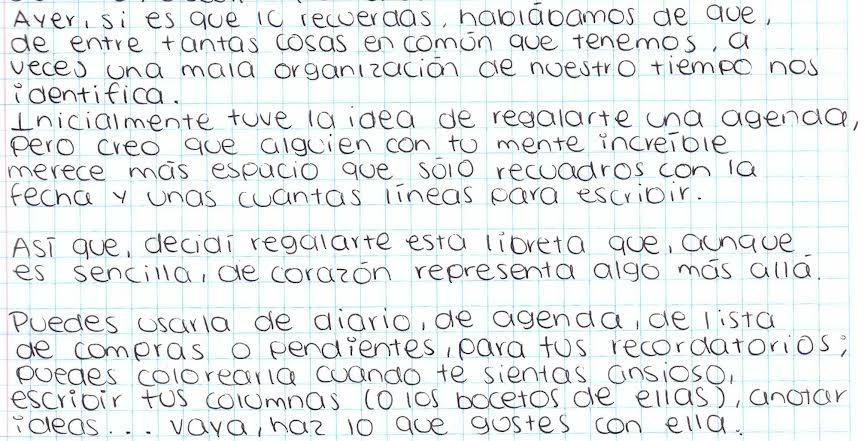 Ayer, si es que lo recuerdas, hablábamos de que,
de entre tantas cosas en común que tenemos, a
veces una mala organización de nuestro tiempo nos
identifica.
Inicialmente tuve la idea de regalarte una agenda,
pero creo que alguien con tu mente increíble
merece más espacio que sólo recuadros con la
fecha y unas cuantas líneas para escribir.
Así que, decidí regalarte esta libreta que, aunque
es sencilla, de corazón representa algo más allá.
Puedes usarla de diario, de agenda, de lista
de compras o pendientes, para tus recordatorios;
puedes colorearla cuando te sientas ansioso,
escribir tus columnas (o los bocetos de ellas), anotar
ideas... vaya, haz lo que gustes con ella.